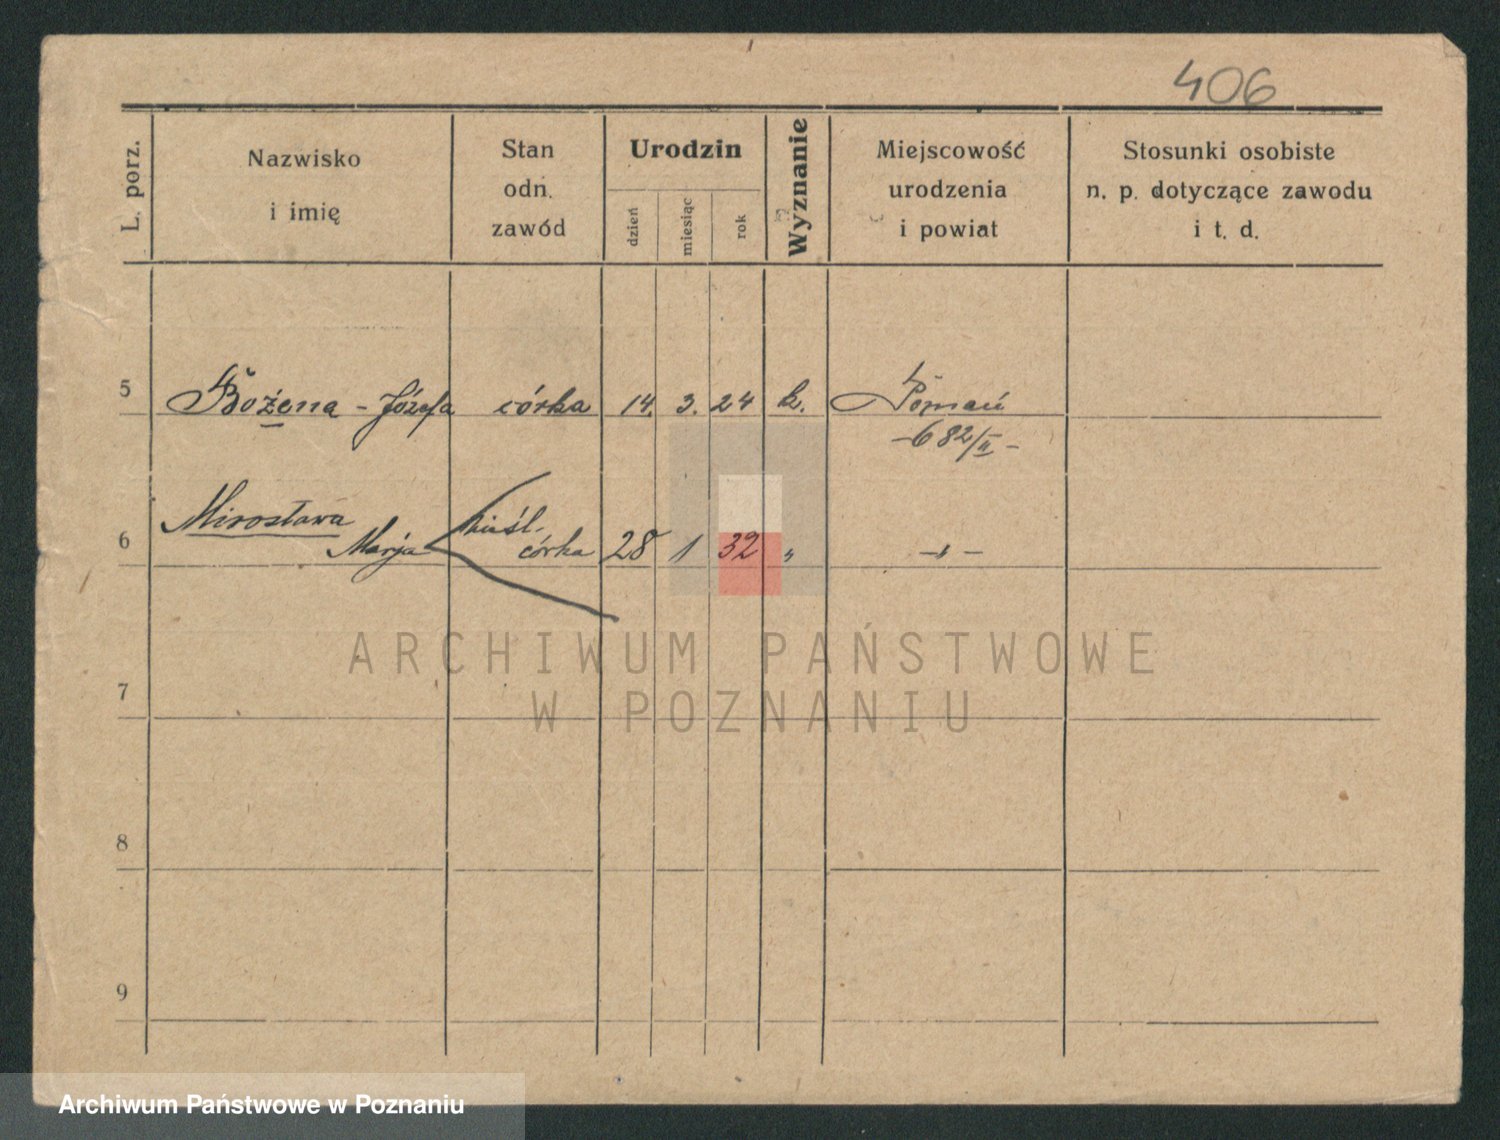 406
L. porz.
Nazwisko
i imię
Stan
odn.
zawód
Urodzin
dzień
miesiąc
rok
Wyznanie
Miejscowość
urodzenia
i powiat
Stosunki osobiste
n. p. dotyczące zawodu
i t. d.
5 Bożena - Józefa córka 14. 3. 24 k. Poznań
- 682/II -
6 Mirosława
Marja córka 28 1 32 „ - „ -
7
8
9
ARCHIWUM PAŃSTWOWE
W POZNANIU
Archiwum Państwowe w Poznaniu